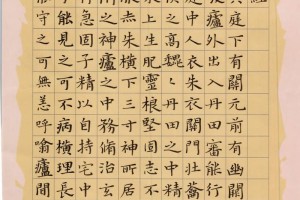 經
庭下有關元前有幽闕
廬外出入丹田審能行
庭中人衣朱衣關門壯籥
俠之高巍巍丹田之中精
水上生肥靈根堅志不
赤朱橫下三寸神所居
神廬之中務脩治玄
急固子精以自持宅中
能見之可不病橫理長
能守之可無恙呼噏廬間